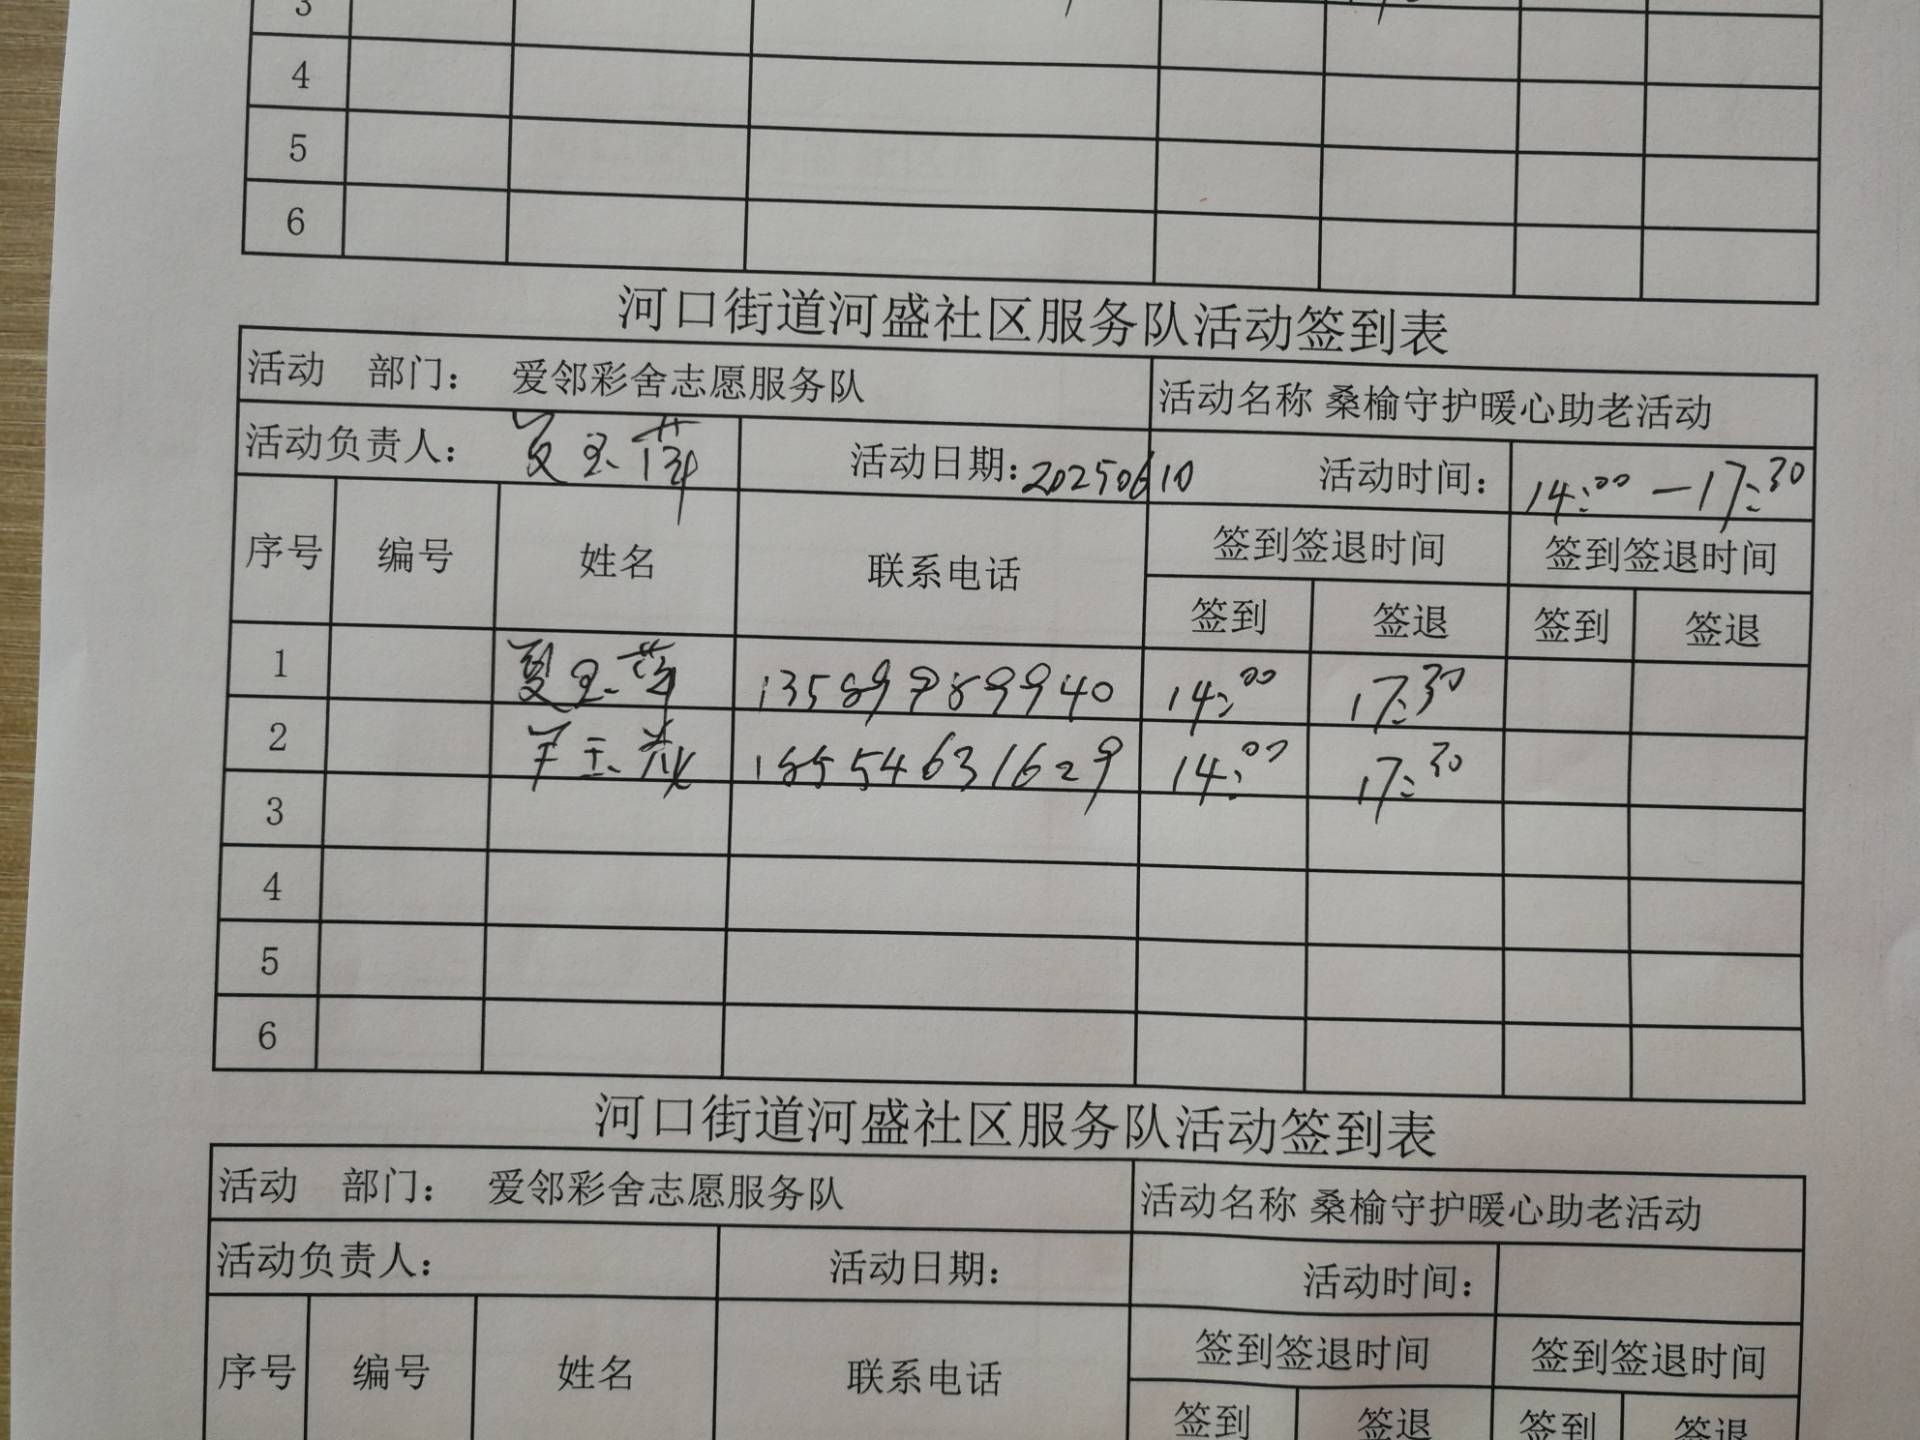 3
4
5
6
河口街道河盛社区服务队活动签到表
活动 部门: 爱邻彩舍志愿服务队 活动名称 桑榆守护暖心助老活动
活动负责人: 夏玉萍 活动日期: 20250610 活动时间: 14:00 — 17:30
序号 编号 姓名 联系电话 签到签退时间 签到签退时间
签到 签退 签到 签退
1 夏玉萍 13589989940 14:00 17:30
2 18554631629 14:00 17:30
3
4
5
6
河口街道河盛社区服务队活动签到表
活动 部门: 爱邻彩舍志愿服务队 活动名称 桑榆守护暖心助老活动
活动负责人: 活动日期: 活动时间:
序号 编号 姓名 联系电话 签到签退时间 签到签退时间
签到 签退 签到 签退